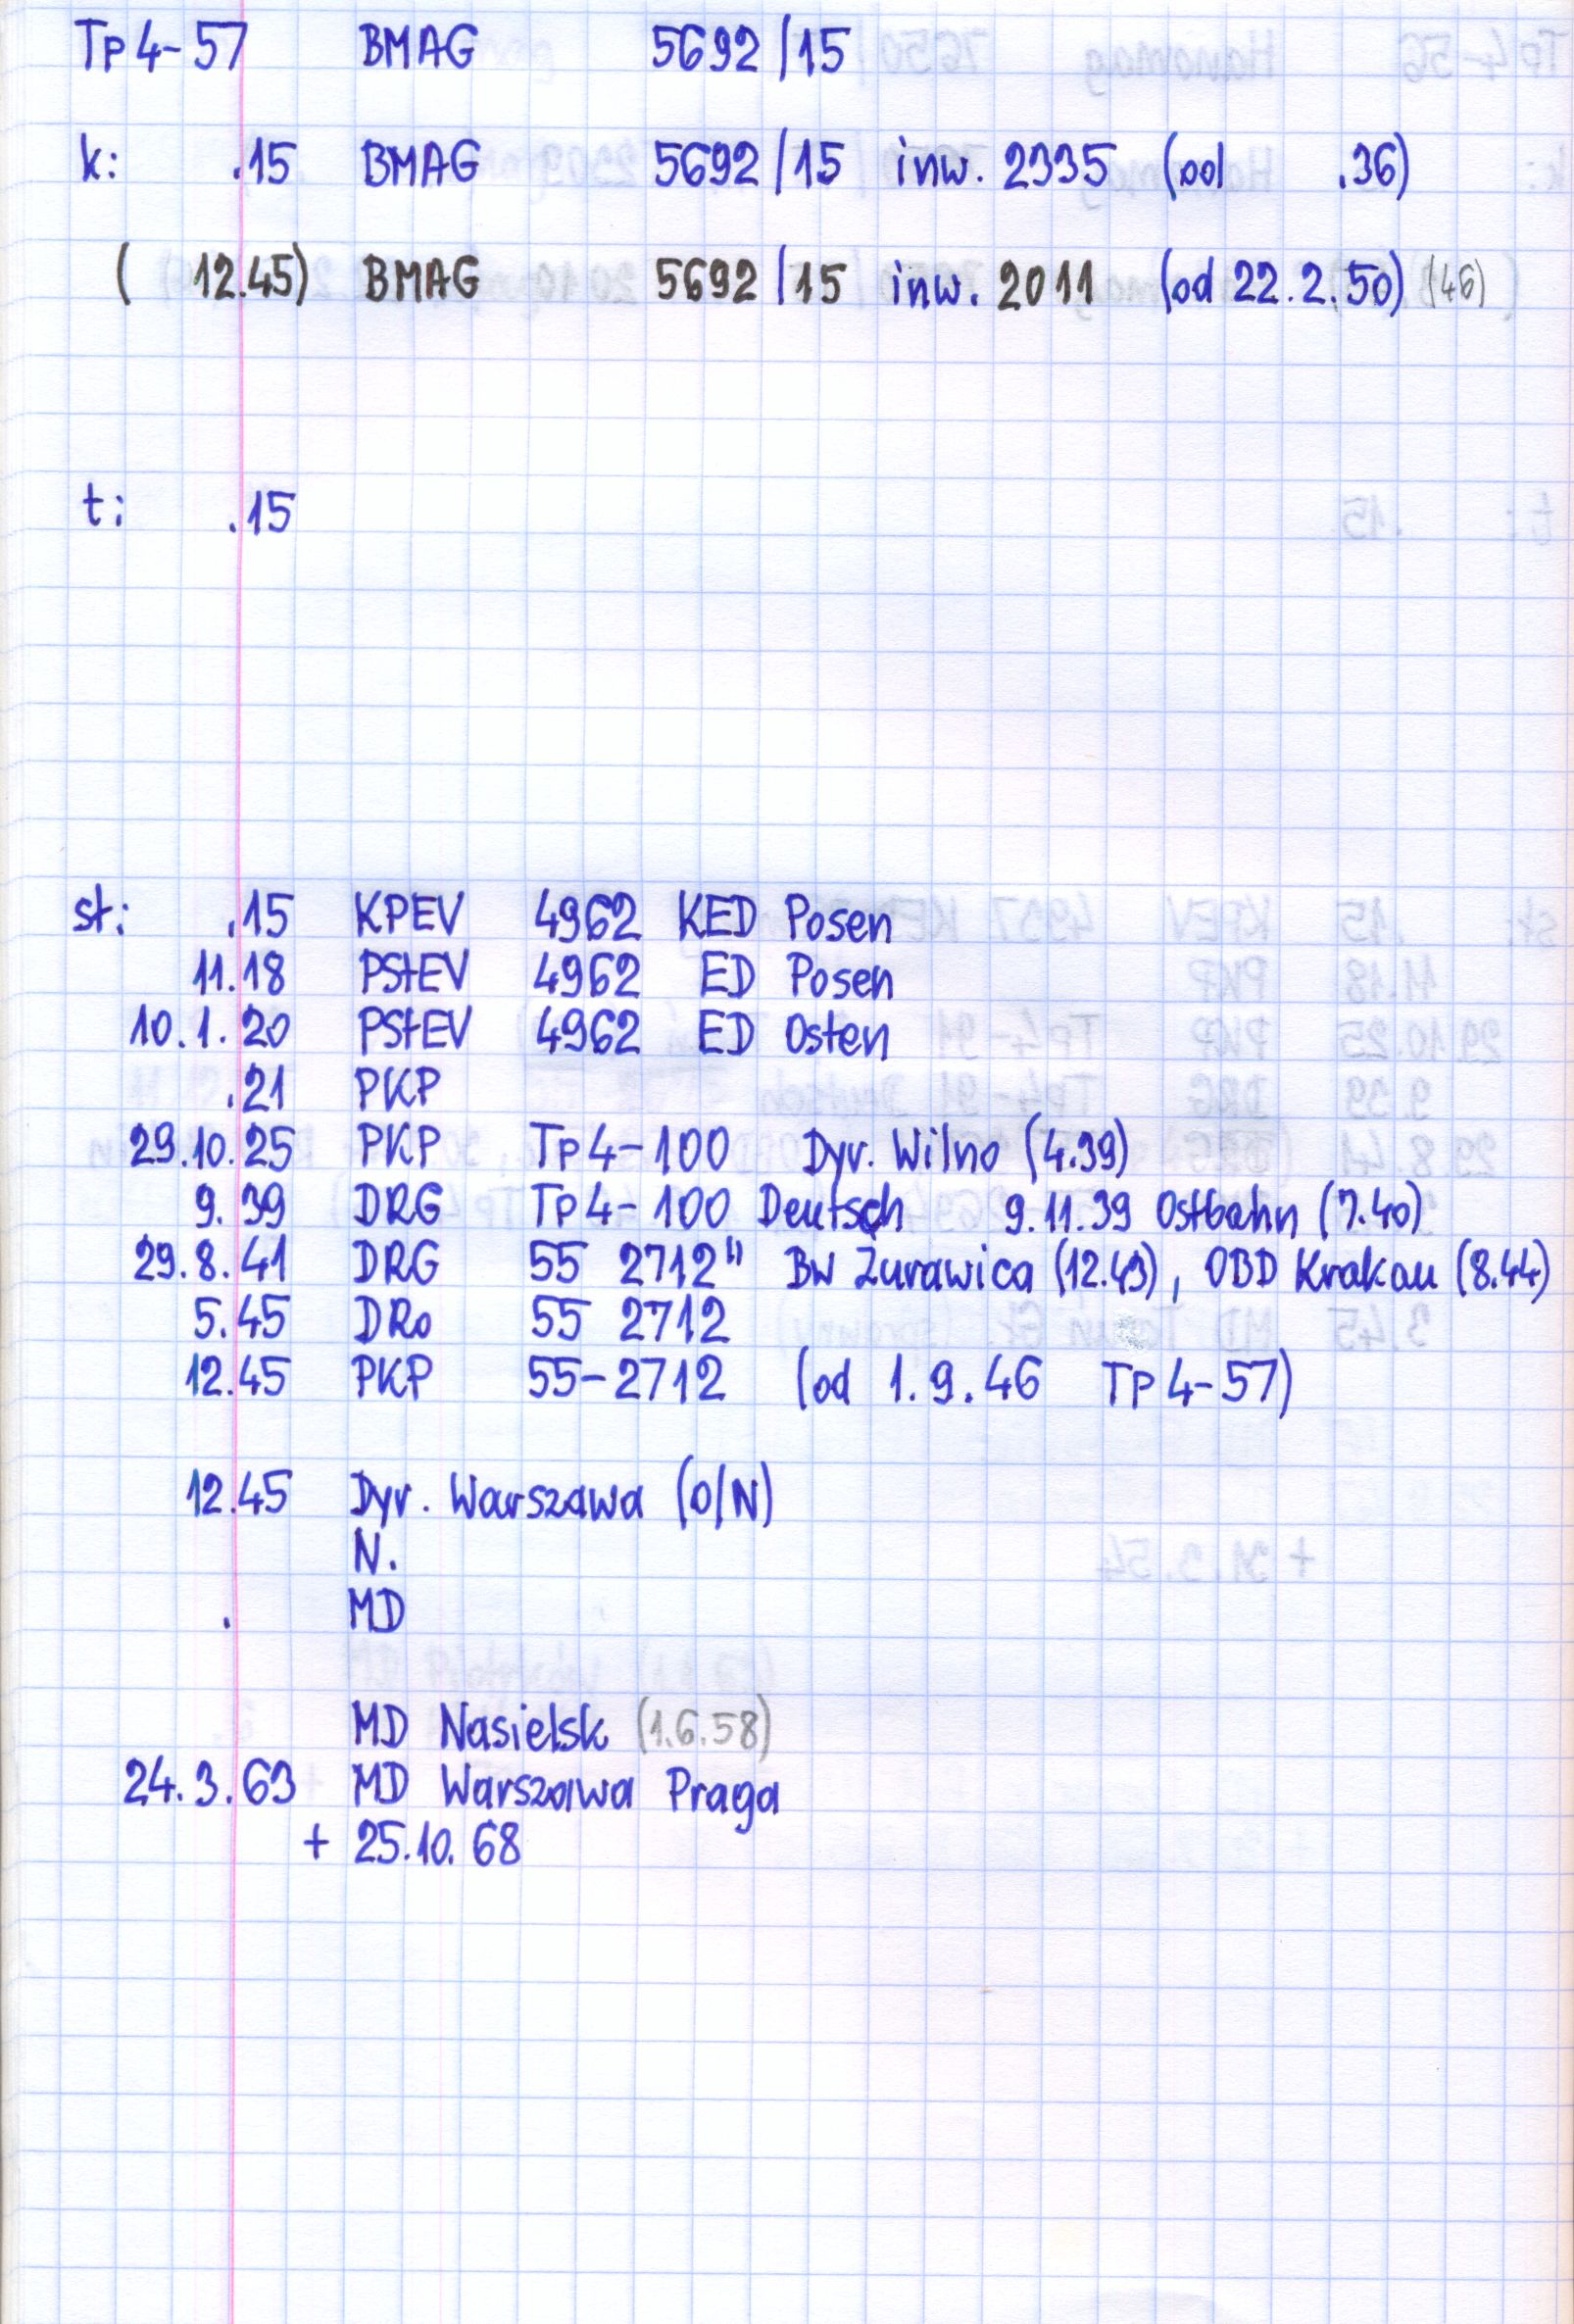 Tp4-57 BMAG 5692/15
k: .15 BMAG 5692/15 inw. 2335 (od .36)
( 12.45) BMAG 5692/15 inw. 2011 (od 22.2.50) (46)
t: .15
st: .15 KPEV 4962 KED Posen
11.18 PStEV 4962 ED Posen
10.1.20 PStEV 4962 ED Osten
.21 PKP
29.10.25 PKP Tp4-100 Dyr. Wilno (4.39)
9.39 DRG Tp4-100 Deutsch 9.11.39 Ostbahn (7.40)
29.8.41 DRG 55 2712" BW Żurawica (12.43), OBD Krakau (8.44)
5.45 DRo 55 2712
12.45 PKP 55-2712 (od 1.9.46 Tp4-57)
12.45 Dyr. Warszawa (O/N)
N.
. MD
MD Nasielsk (1.6.58)
24.3.63 MD Warszawa Praga
+ 25.10.68